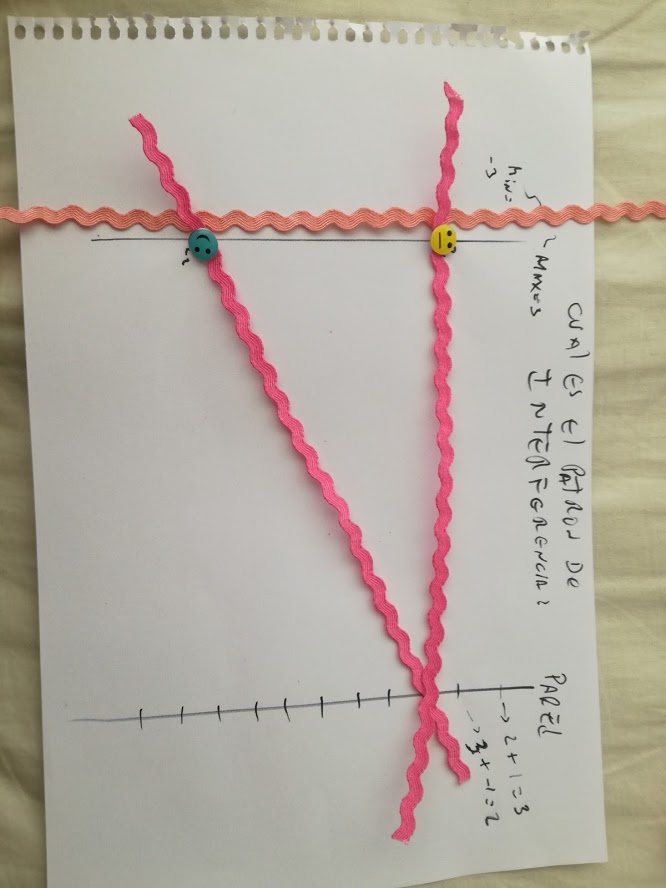 CUAL ES EL PATRON DE
INTERFERENCIA?
MIN=
-3
MAX=3
PARED
→ 2+1=3
→ 3+-1=2